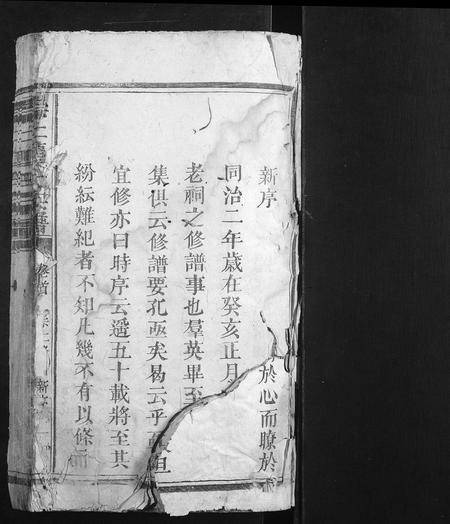 新序
於心而瞭於
同治二年歲在癸亥正月
老祠之修譜事也羣英畢至
集俱云修譜要孔亟矣曷云乎
宜修亦曰時序云遙五十載將至其
紛紜難紀者不知凡幾不有以條而
卷首
新序